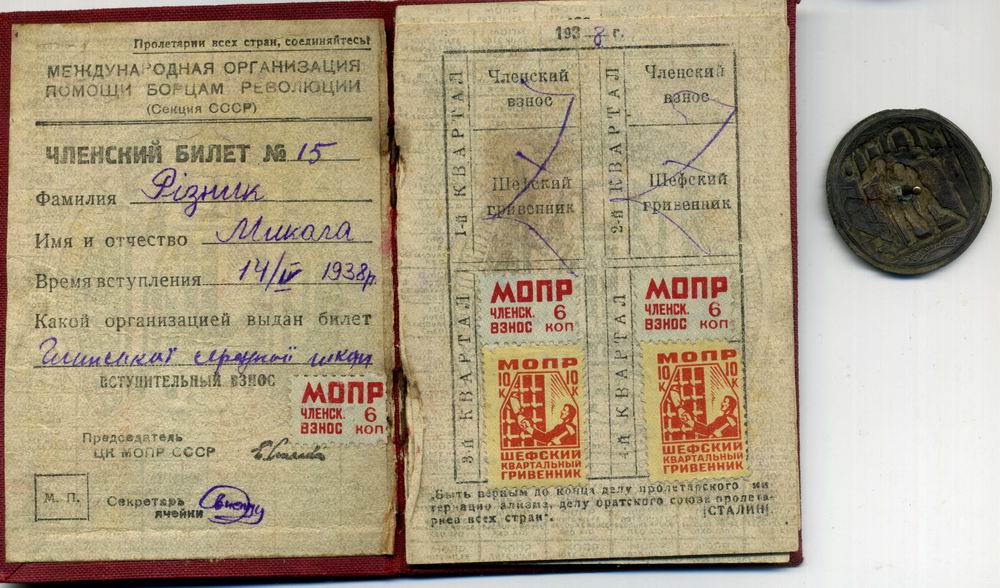 Пролетарии всех стран, соединяйтесь!
МЕЖДУНАРОДНАЯ ОРГАНИЗАЦИЯ
ПОМОЩИ БОРЦАМ РЕВОЛЮЦИИ
(Секция СССР)
ЧЛЕНСКИЙ БИЛЕТ № 15
Фамилия Різник
Имя и отчество Микола
Время вступления 14/IV 1938р.
Какой организацией выдан билет
ВСТУПИТЕЛЬНЫЙ ВЗНОС
МОПР
ЧЛЕНСК. 6
ВЗНОС КОП
Председатель
ЦК МОПР СССР
М. П.
Секретарь
ячейки
1938 г.
1-й КВАРТАЛ
Членский
взнос
Шефский
гривенник
2-й КВАРТАЛ
Членский
взнос
Шефский
гривенник
3-й КВАРТАЛ
МОПР
ЧЛЕНСК. 6
ВЗНОС КОП
МОПР
10 К 10 К
ШЕФСКИЙ
КВАРТАЛЬНЫЙ
ГРИВЕННИК
4-й КВАРТАЛ
МОПР
ЧЛЕНСК. 6
ВЗНОС КОП
МОПР
10 К 10 К
ШЕФСКИЙ
КВАРТАЛЬНЫЙ
ГРИВЕННИК
„Быть верным до конца делу пролетарского ин
тернационализма, делу братского союза пролета-
риев всех стран".
(СТАЛИН).